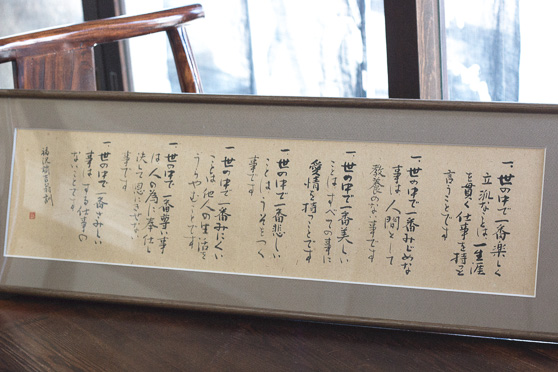 一、世の中で一番楽しく
立派なことは一生涯
を貫く仕事を持と
言うことです
一、世の中で一番みじめな
事は人間として
教養のない事です
一、世の中で一番美しい
ことはすべての事に
愛情を持ことです
一、世の中で一番悲しい
ことはうそをつく
事です
一、世の中で一番みにくい
ことは他人の生活を
うらやむことです
一、世の中で一番尊い事
は人の為に奉仕し
決して恩にきせない
事です
一、世の中で一番さみしい
事はする仕事の
ないことです
福沢諭吉翁訓